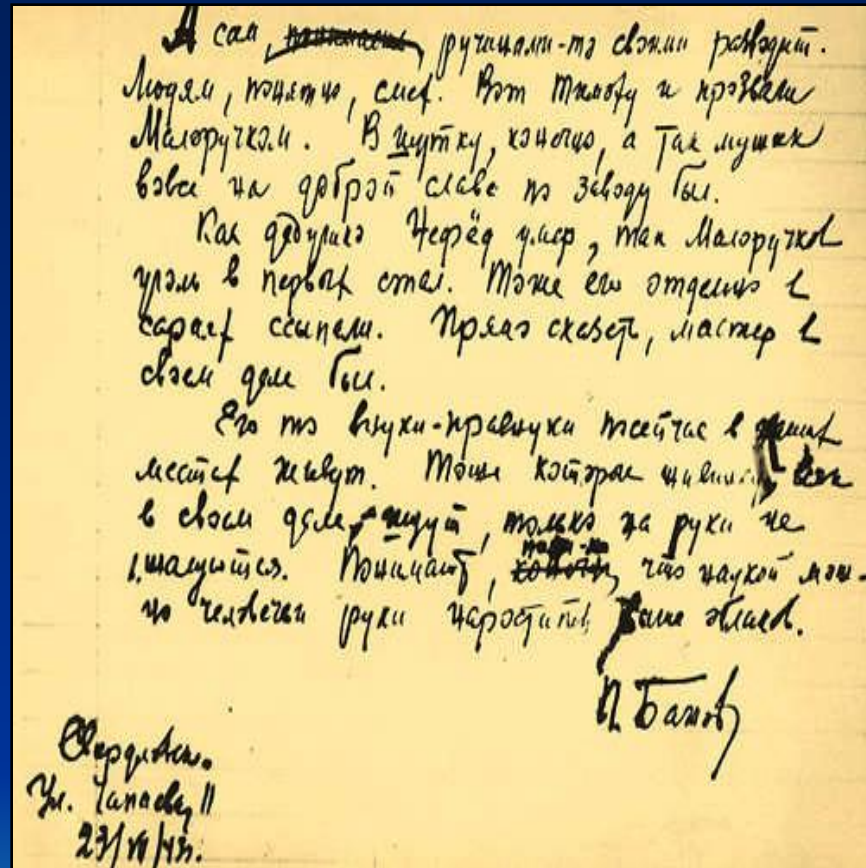 А сам, ручищами-то своими разводит.
Людям, понятно, смех. Вот Тимоху и прозвали
Малоручком. В шутку, конечно, а так мужик
вовсе на доброй славе по заводу был.
Как дедушко Нефёд умер, так Малоручков
уголь в первых стал. Тоже его отдельно в
сараях ссыпали. Прямо сказать, мастер в
своем деле был.
Его то внуки-правнуки посейчас в наших
местах живут. Тоже которые живинку всяк
в своем деле ищут, только на руки не
жалуются. Понимают, поди-ко, что наукой мож-
но человечьи руки нарастить выше облаков.
П Бажов
Свердловск.
Ул. Чапаева, 11